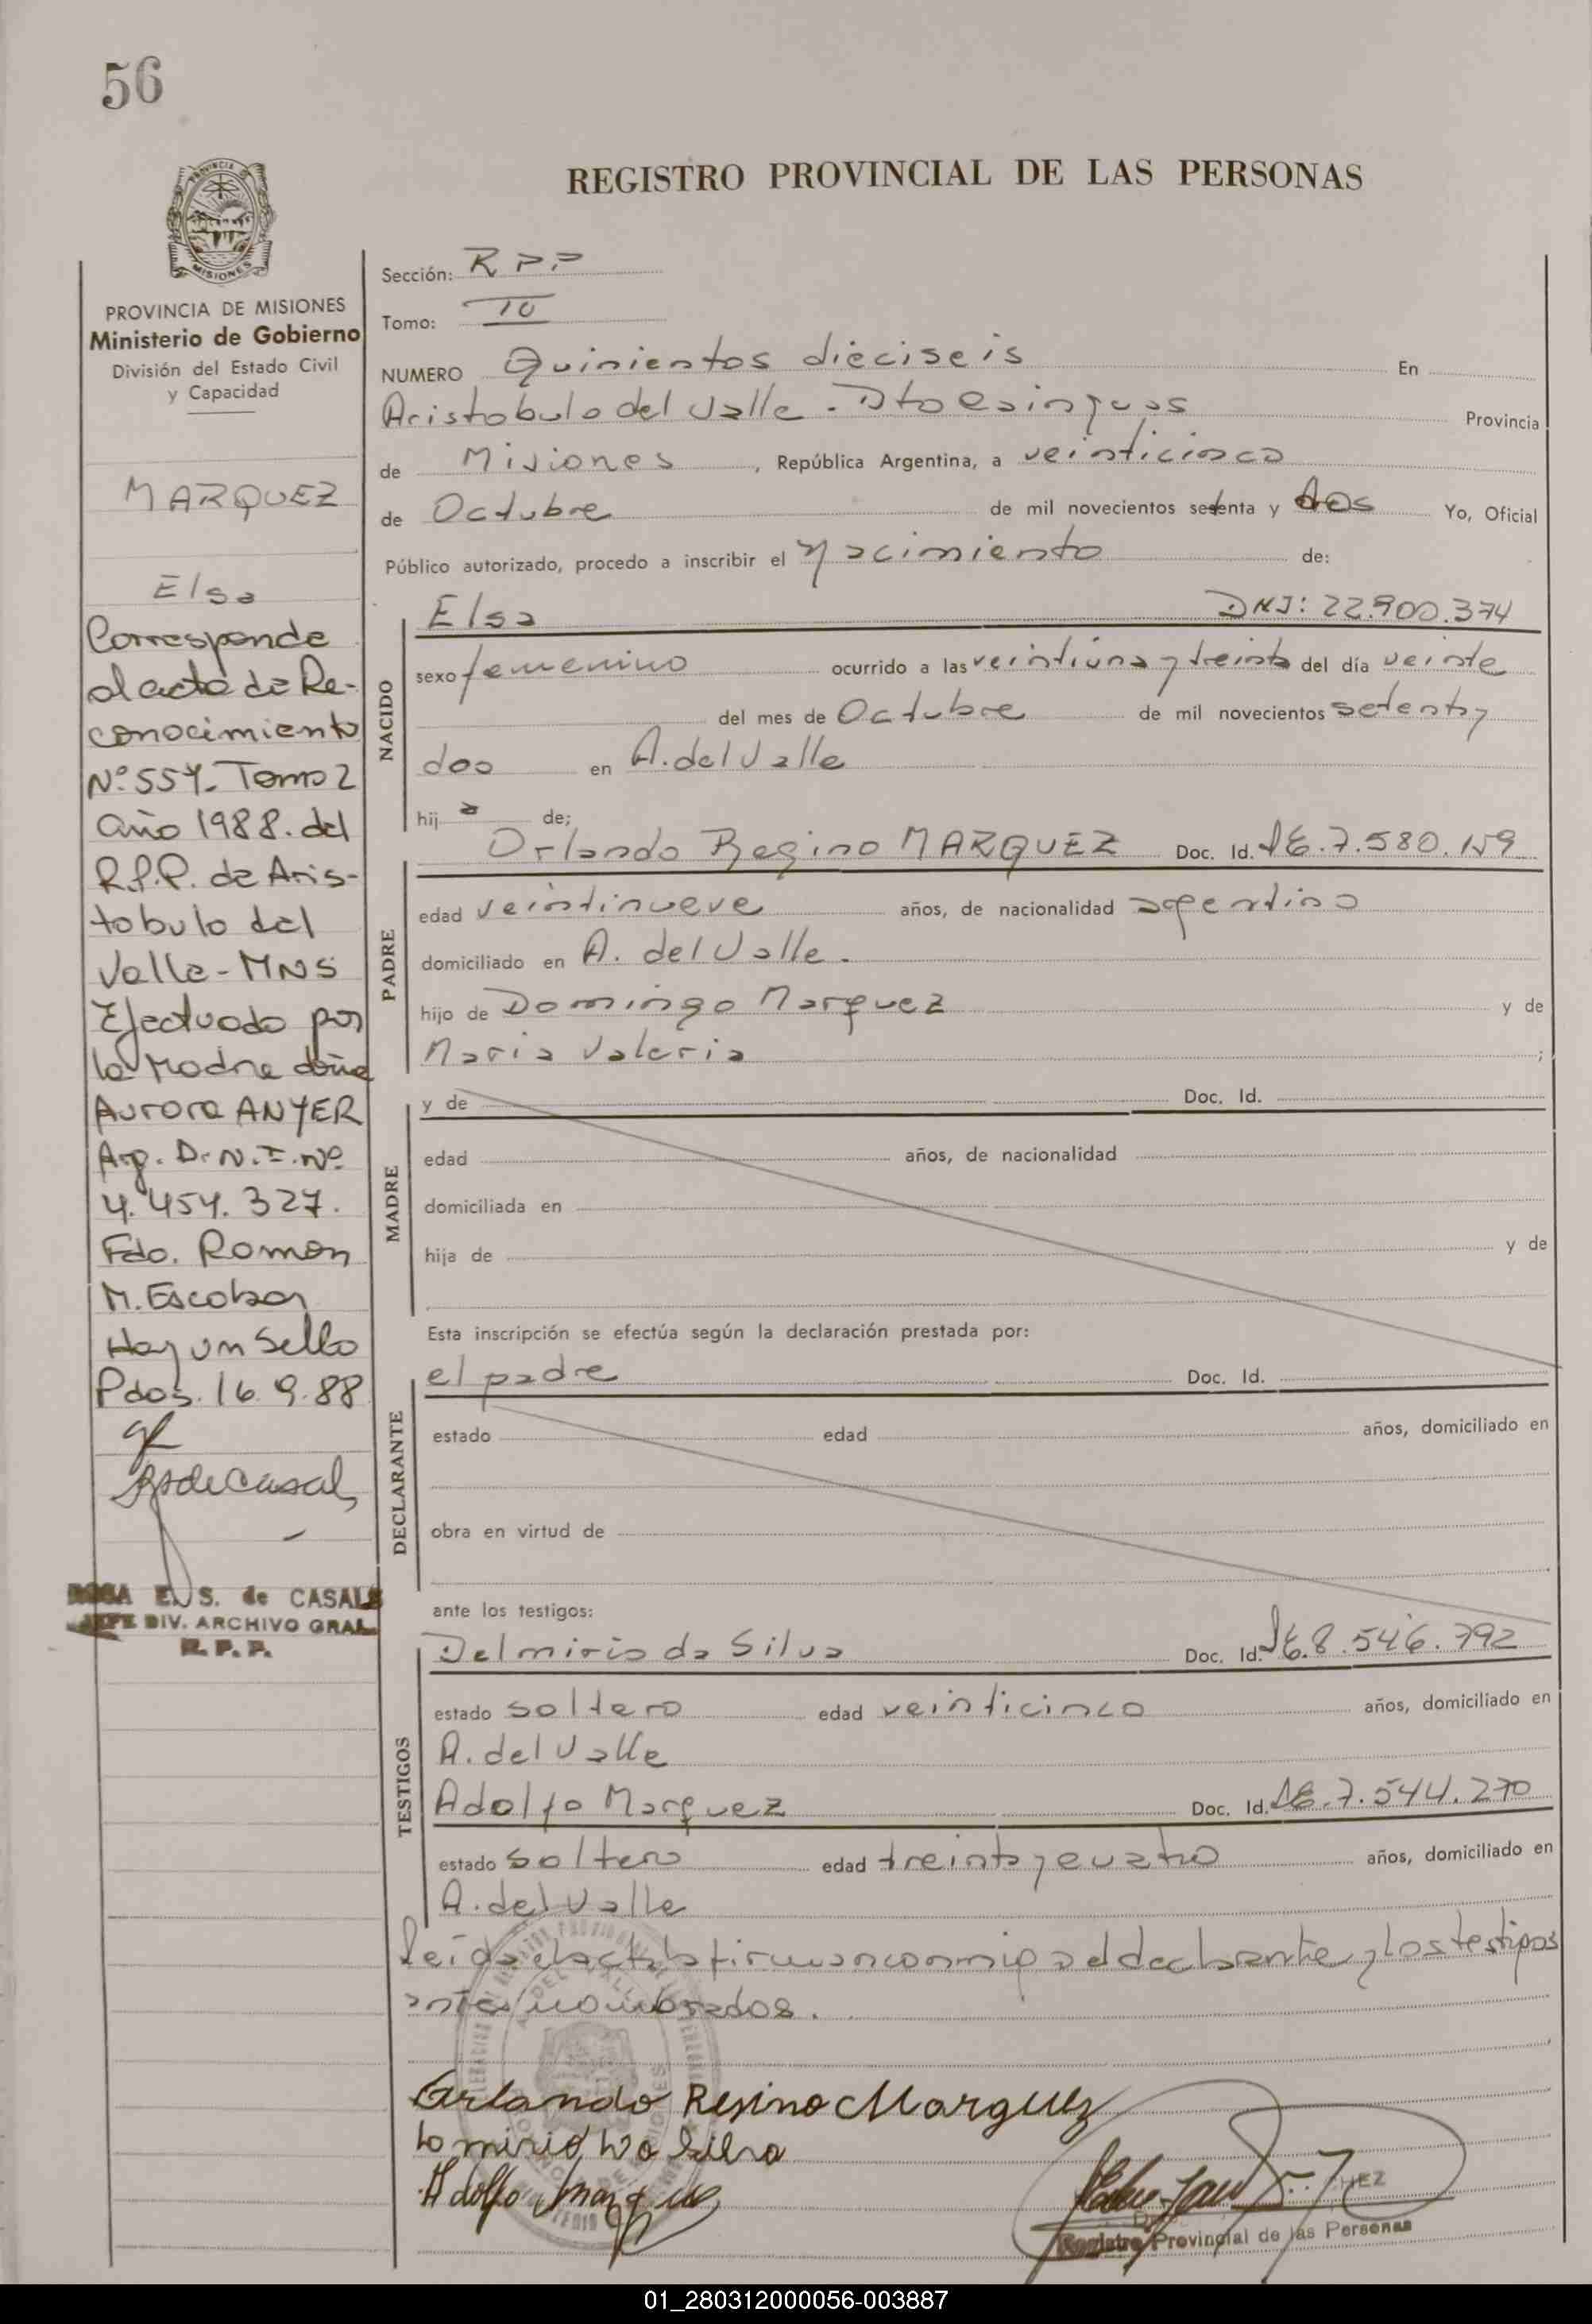 56
REGISTRO PROVINCIAL DE LAS PERSONAS
PROVINCIA DE MISIONES
Ministerio de Gobierno
División del Estado Civil
y Capacidad
MARQUEZ
Elsa
Corresponde
al acta de Re-
conocimiento
Nº 554- Tomo 2
Año 1988. del
R.P.P. de Aris-
tobulo del
Valle-MNS
Efectuado por
la Madre doña
Aurora ANYER
Arg. D.N.I. Nº
4.454.327.
Fdo. Ramon
M. Escobar
Hay un Sello
Pdas. 16.9.88
ROSA E. S. de CASALS
JEFE DIV. ARCHIVO GRAL.
R. P. P.
Sección: R P.P
Tomo:
NUMERO Quinientos dieciseis En
Aristobulo del Valle - Dto Cainguas Provincia
de Misiones, República Argentina, a veinticinco
de Octubre de mil novecientos setenta y dos Yo, Oficial
Público autorizado, procedo a inscribir el Nacimiento de:
NACIDO
Elsa DNI: 22.900.374
sexo femenino ocurrido a las veintiuna y treinta del día veinte
del mes de Octubre de mil novecientos setenta y
dos en A. del Valle
hij a de;
PADRE
Orlando Regino MARQUEZ Doc. Id. LE. 7.580.159
edad veintinueve años, de nacionalidad argentino
domiciliado en A. del Valle.
hijo de Domingo Marquez y de
Maria Valeria ;
MADRE
y de Doc. Id.
edad años, de nacionalidad
domiciliada en
hija de y de
Esta inscripción se efectúa según la declaración prestada por:
DECLARANTE
el padre Doc. Id.
estado edad años, domiciliado en
obra en virtud de
ante los testigos:
TESTIGOS
Delmirio da Silva Doc. Id. LE. 8.546.792
estado soltero edad veinticinco años, domiciliado en
A. del Valle
Adolfo Marquez Doc. Id. LE. 7.544.270
estado soltero edad treinta y cuatro años, domiciliado en
A. del Valle
Leída el acta la firman conmigo el declarante y los testigos
antes nombrados.
Orlando Regino Marquez
da Silva
Adolfo Marquez
Registro Provincial de las Personas
01_280312000056-003887